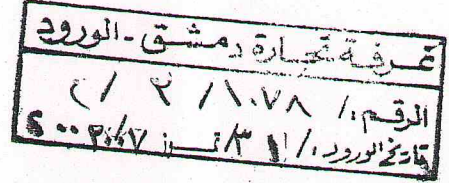 غرفة تجارة دمشق - الورود
الرقم: / ١٠٧٨ / ٢ /
تاريخ الورود: / ٣١ / تموز ٢٠٠٧